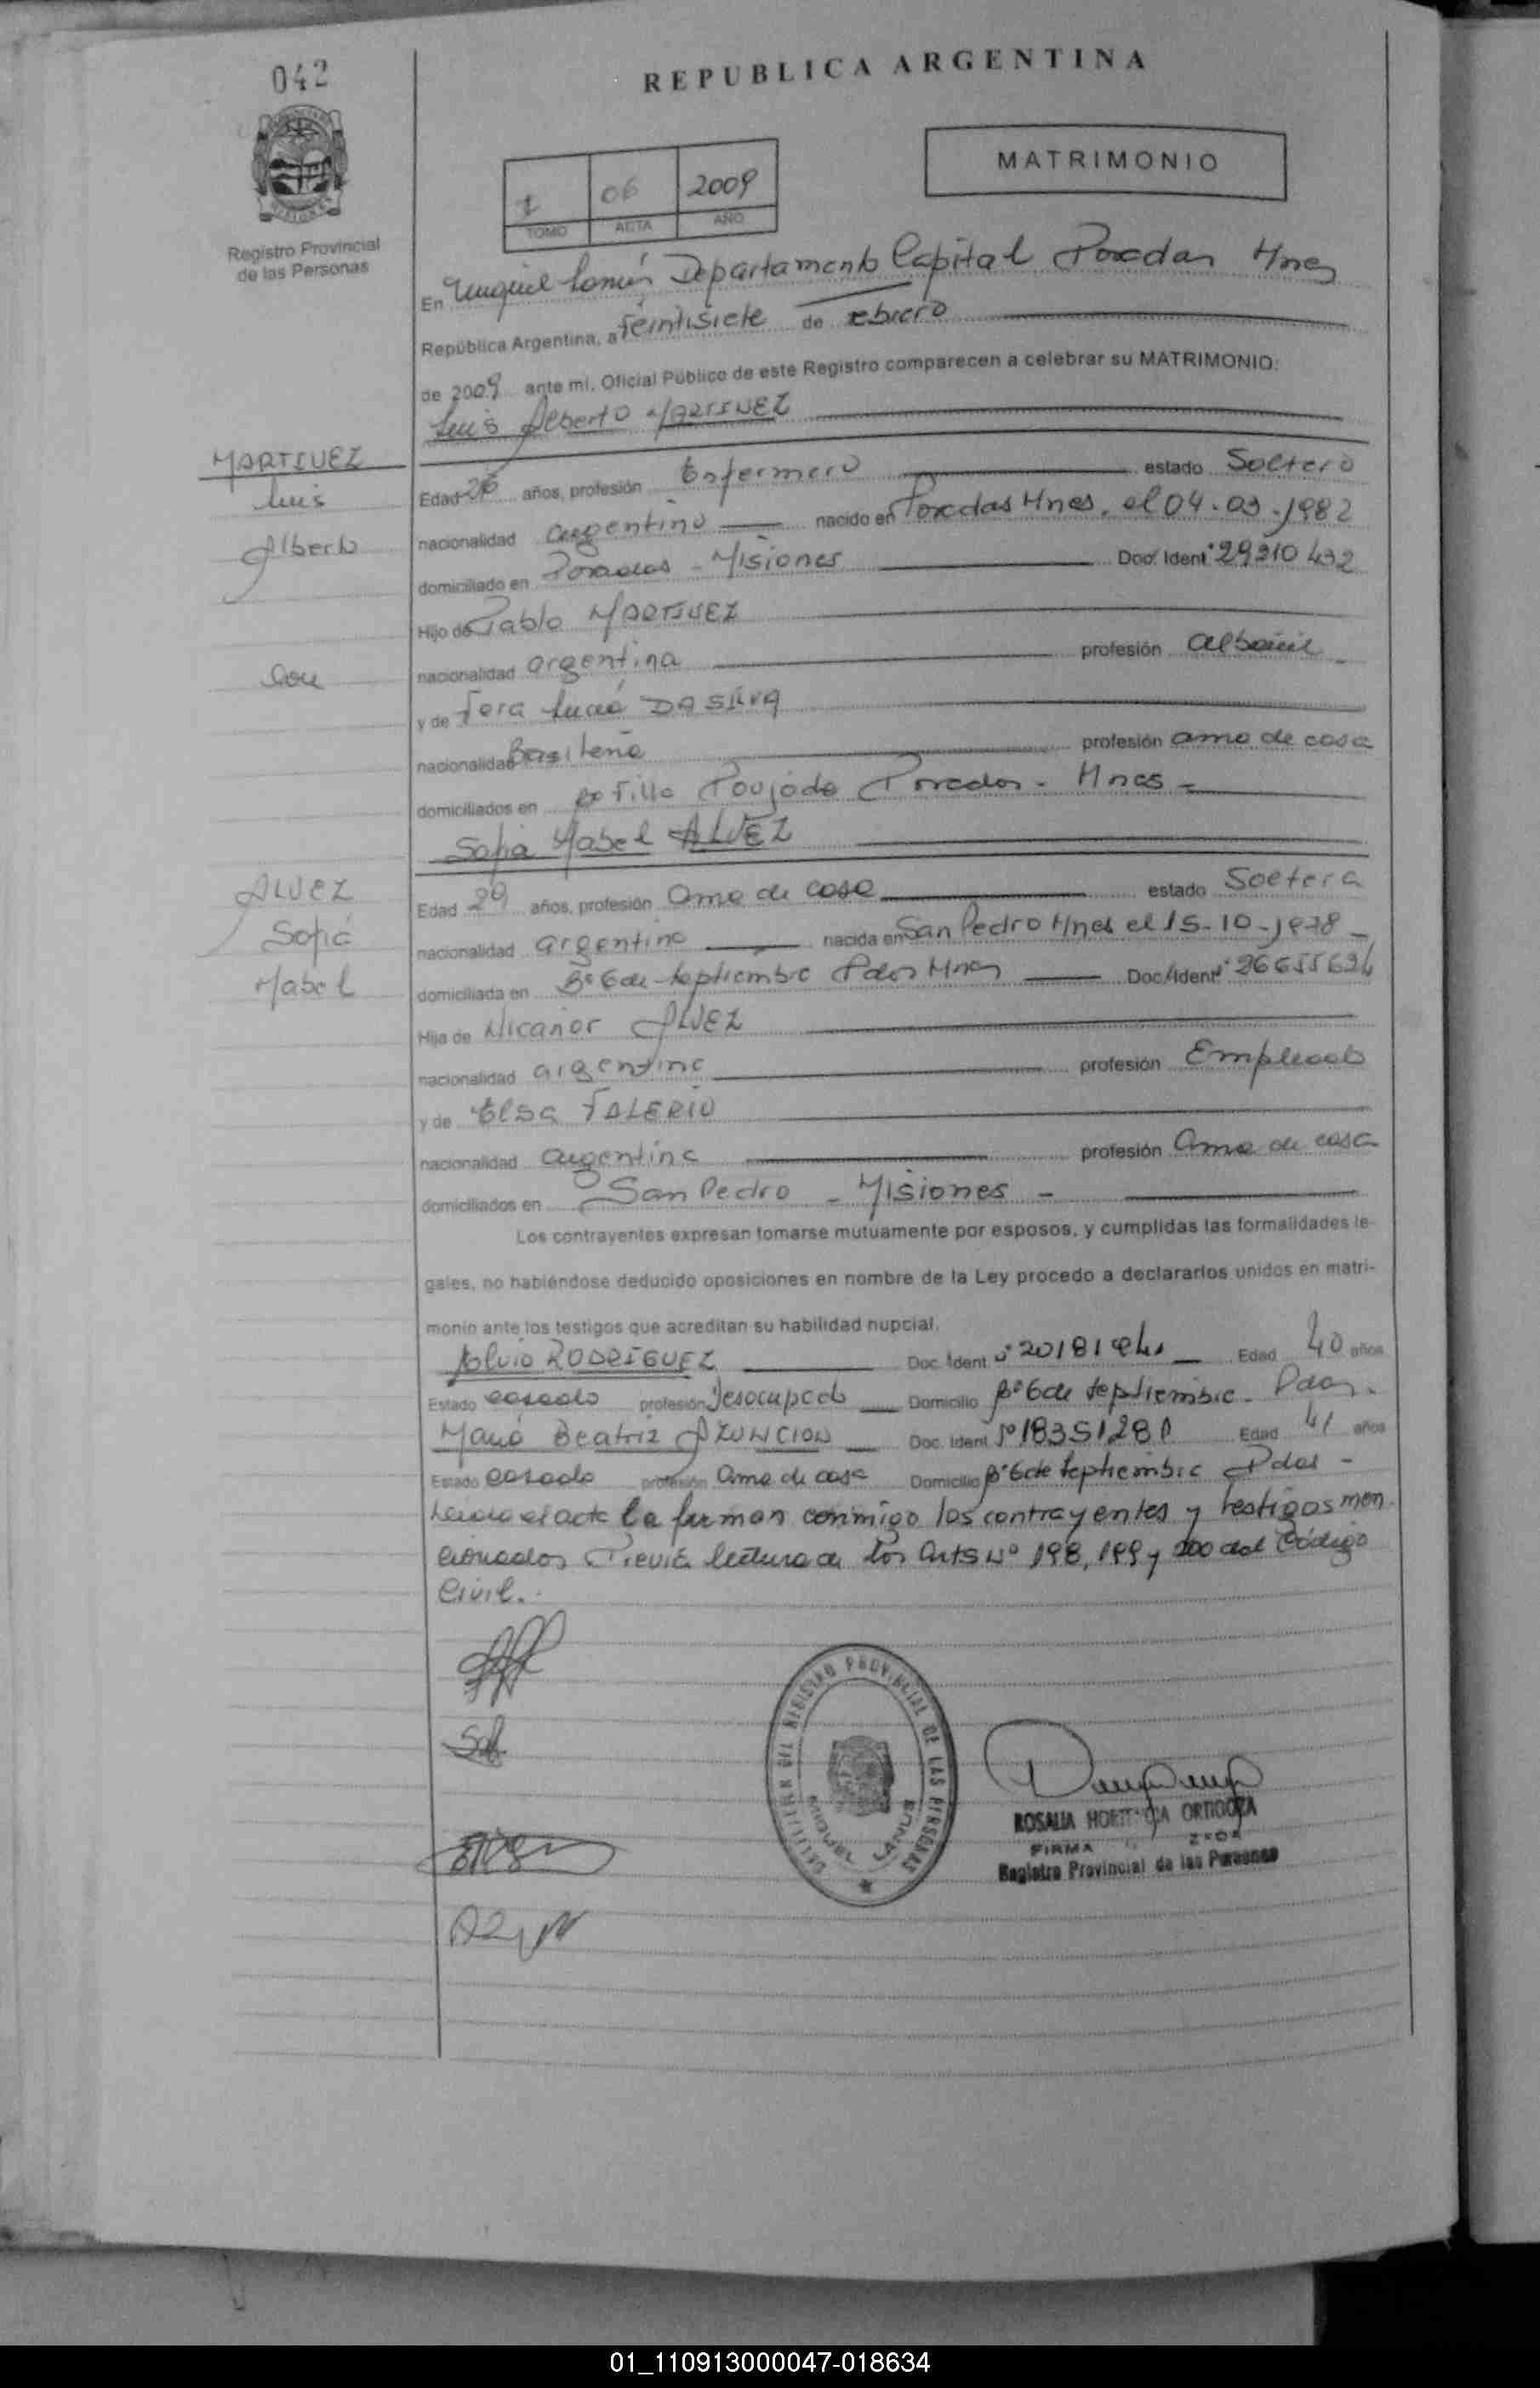 042
REPUBLICA ARGENTINA
MATRIMONIO
1 06 2009
TOMO ACTA AÑO
Registro Provincial
de las Personas
En Departamento Capital Posadas Mnes
República Argentina, a Veintisiete de Febrero
de 2009 ante mi, Oficial Público de este Registro comparecen a celebrar su MATRIMONIO:
Luis Alberto MARTINEZ
MARTINEZ
Luis
Alberto
Edad 26 años, profesión Enfermero estado Soltero
nacionalidad argentino nacido en Posadas Mnes, el 04-03-1982
domiciliado en Posadas - Misiones Doc. Ident 29310432
Hijo de Pablo MARTINEZ
con
nacionalidad argentina profesión albañil
y de Vera Lucia DA SILVA
nacionalidad profesión ama de casa
domiciliados en Villa Poujade Posadas - Mnes -
Sofia Mabel ALVEZ
ALVEZ
Sofia
Mabel
Edad 29 años, profesión Ama de casa estado Soltera
nacionalidad argentina nacida en San Pedro Mnes el 15-10-1978 -
domiciliada en Bº 6 de septiembre Pdas Mnes Doc/Ident
Hija de Nicanor ALVEZ
nacionalidad argentino profesión Empleado
y de Elsa VALERIO
nacionalidad argentina profesión Ama de casa
domiciliados en San Pedro - Misiones -
Los contrayentes expresan tomarse mutuamente por esposos, y cumplidas las formalidades le-
gales, no habiéndose deducido oposiciones en nombre de la Ley procedo a declararlos unidos en matri-
monio ante los testigos que acreditan su habilidad nupcial.
RODRIGUEZ Doc. Ident Edad 40 años
Estado casado profesión Desocupado Domicilio Bº 6 de septiembre - Pdas -
Maria Beatriz AZUNCION Doc. Ident Edad 41 años
Estado casada profesión Ama de casa Domicilio Bº 6 de septiembre Pdas -
Leido el acta la firman conmigo los contrayentes y testigos men
cionados Previa lectura de los Arts Nº 198, 199 y 200 del Código
Civil.
DEL REGISTRO PROVINCIAL DE LAS PERSONAS
MIGUEL LANUS
ROSALIA ORTIGOZA
FIRMA
Registro Provincial de las Personas
01_110913000047-018634